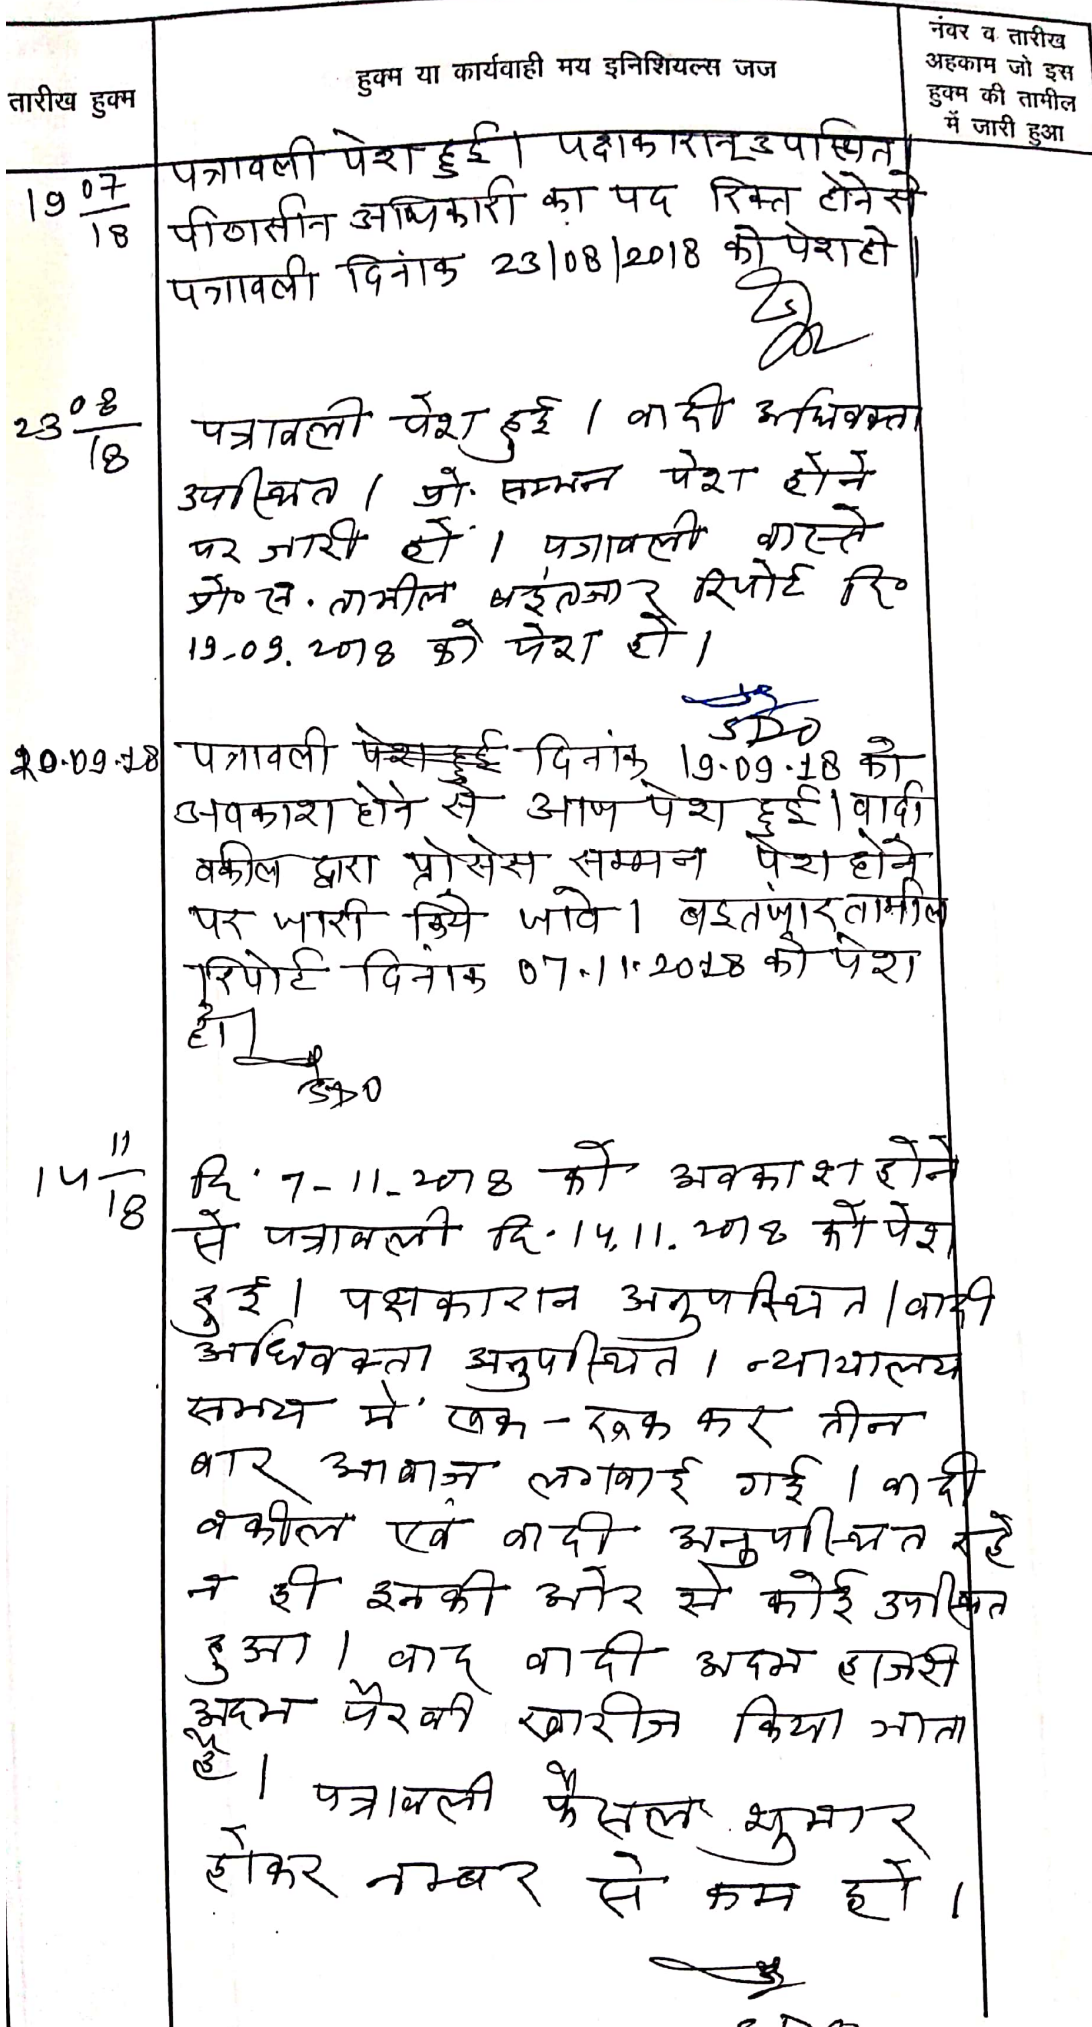 तारीख हुक्म
हुक्म या कार्यवाही मय इनिशियल्स जज
नंबर व तारीख
अहकाम जो इस
हुक्म की तामील
में जारी हुआ
19 07/18
पत्रावली पेश हुई। पक्षकारान उपस्थित।
पीठासीन अधिकारी का पद रिक्त होने से
पत्रावली दिनांक 23/08/2018 को पेश हो।
23 08/18
पत्रावली पेश हुई। वादी अधिवक्ता
उपस्थित। प्रो. सम्मन पेश होने
पर जारी हों। पत्रावली वास्ते
प्रो० स. तामील बइंतजार रिपोर्ट दि०
19-09.2018 को पेश हो।
SDO
20.09.18
पत्रावली पेश हुई दिनांक 19.09.18 को
अवकाश होने से आज पेश हुई। वादी
वकील द्वारा प्रोसेस सम्मन पेश होने
पर जारी किये जावे। बइतजार तामील
रिपोर्ट दिनांक 07.11.2018 को पेश
हो।
SDO
14 11/18
दि. 7-11-2018 को अवकाश होने
से पत्रावली दि.14.11.2018 को पेश
हुई। पक्षकारान अनुपस्थित। वादी
अधिवक्ता अनुपस्थित। न्यायालय
समय में रूक-रूक कर तीन
बार आवाज लगवाई गई। वादी
वकील एवं वादी अनुपस्थित रहे
न ही इनकी ओर से कोई उपस्थित
हुआ। वाद वादी अदम हाजरी
अदम पैरवी खारीज किया जाता
है।
पत्रावली फैसल शुमार
होकर नम्बर से कम हो।